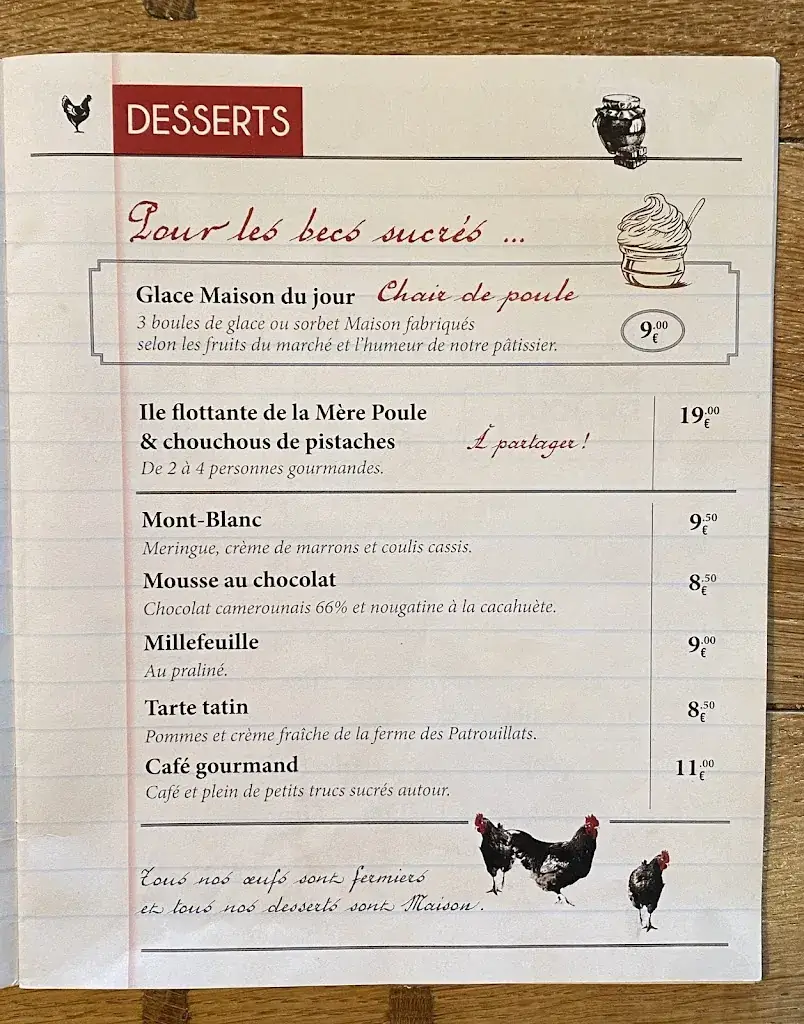 DESSERTS
Pour les becs sucrés ...
Glace Maison du jour Chair de poule
3 boules de glace ou sorbet Maison fabriqués
selon les fruits du marché et l'humeur de notre pâtissier.
9.00 €
Ile flottante de la Mère Poule
19.00 €
& chouchous de pistaches À partager !
De 2 à 4 personnes gourmandes.
Mont-Blanc 9.50 €
Meringue, crème de marrons et coulis cassis.
Mousse au chocolat 8.50 €
Chocolat camerounais 66% et nougatine à la cacahuète.
Millefeuille 9.00 €
Au praliné.
Tarte tatin 8.50 €
Pommes et crème fraîche de la ferme des Patrouillats.
Café gourmand 11.00 €
Café et plein de petits trucs sucrés autour.
Tous nos œufs sont fermiers
et tous nos desserts sont Maison.